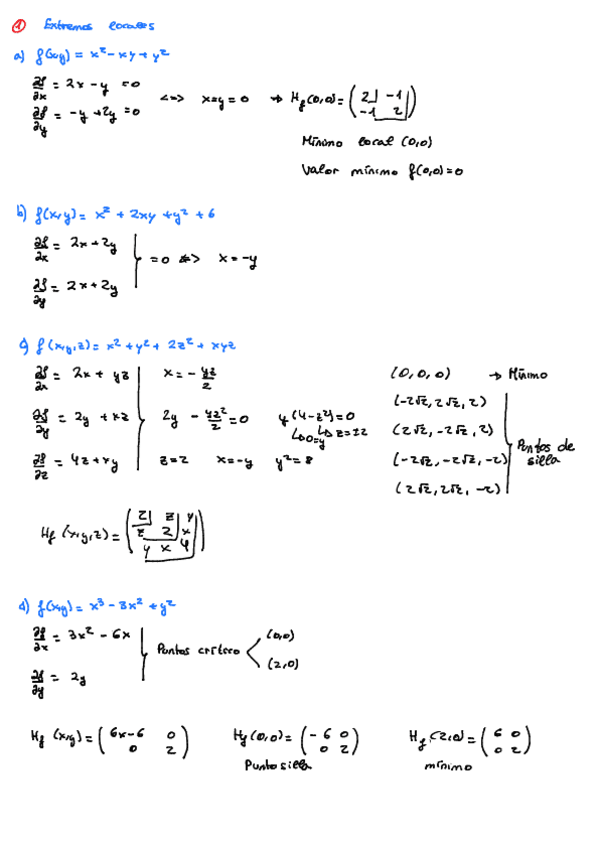 1 Extremos locales
a) f(x,y) = x² - xy + y²
∂f/∂x = 2x - y = 0
∂f/∂y = -y + 2y = 0
<=> x=y=0 → Hf(0,0) = ( 2 -1 ; -1 2 )
Mínimo local (0,0)
Valor mínimo f(0,0)=0
b) f(x,y) = x² + 2xy + y² + 6
∂f/∂x = 2x+2y
∂f/∂y = 2x+2y
= 0 <=> x = -y
c) f(x,y,z) = x² + y² + 2z² + xyz
∂f/∂x = 2x + yz x = - yz/2
∂f/∂y = 2y + xz 2y - yz²/2 = 0 y(4-z²)=0
↳ 0=y ↳ z=±2
∂f/∂z = 4z + xy z=2 x=-y y²=8
(0,0,0) → Mínimo
(-2√2, 2√2, 2)
(2√2, -2√2, 2)
(-2√2, -2√2, -2)
(2√2, 2√2, -2)
Puntos de
silla
Hf(x,y,z) = ( 2 z y ; z 2 x ; y x 4 )
d) f(x,y) = x³ - 3x² + y²
∂f/∂x = 3x² - 6x
∂f/∂y = 2y
Puntos crítico
(0,0)
(2,0)
Hf(x,y) = ( 6x-6 0 ; 0 2 ) Hf(0,0) = ( -6 0 ; 0 2 ) Hf(2,0) = ( 6 0 ; 0 2 )
Punto silla mínimo